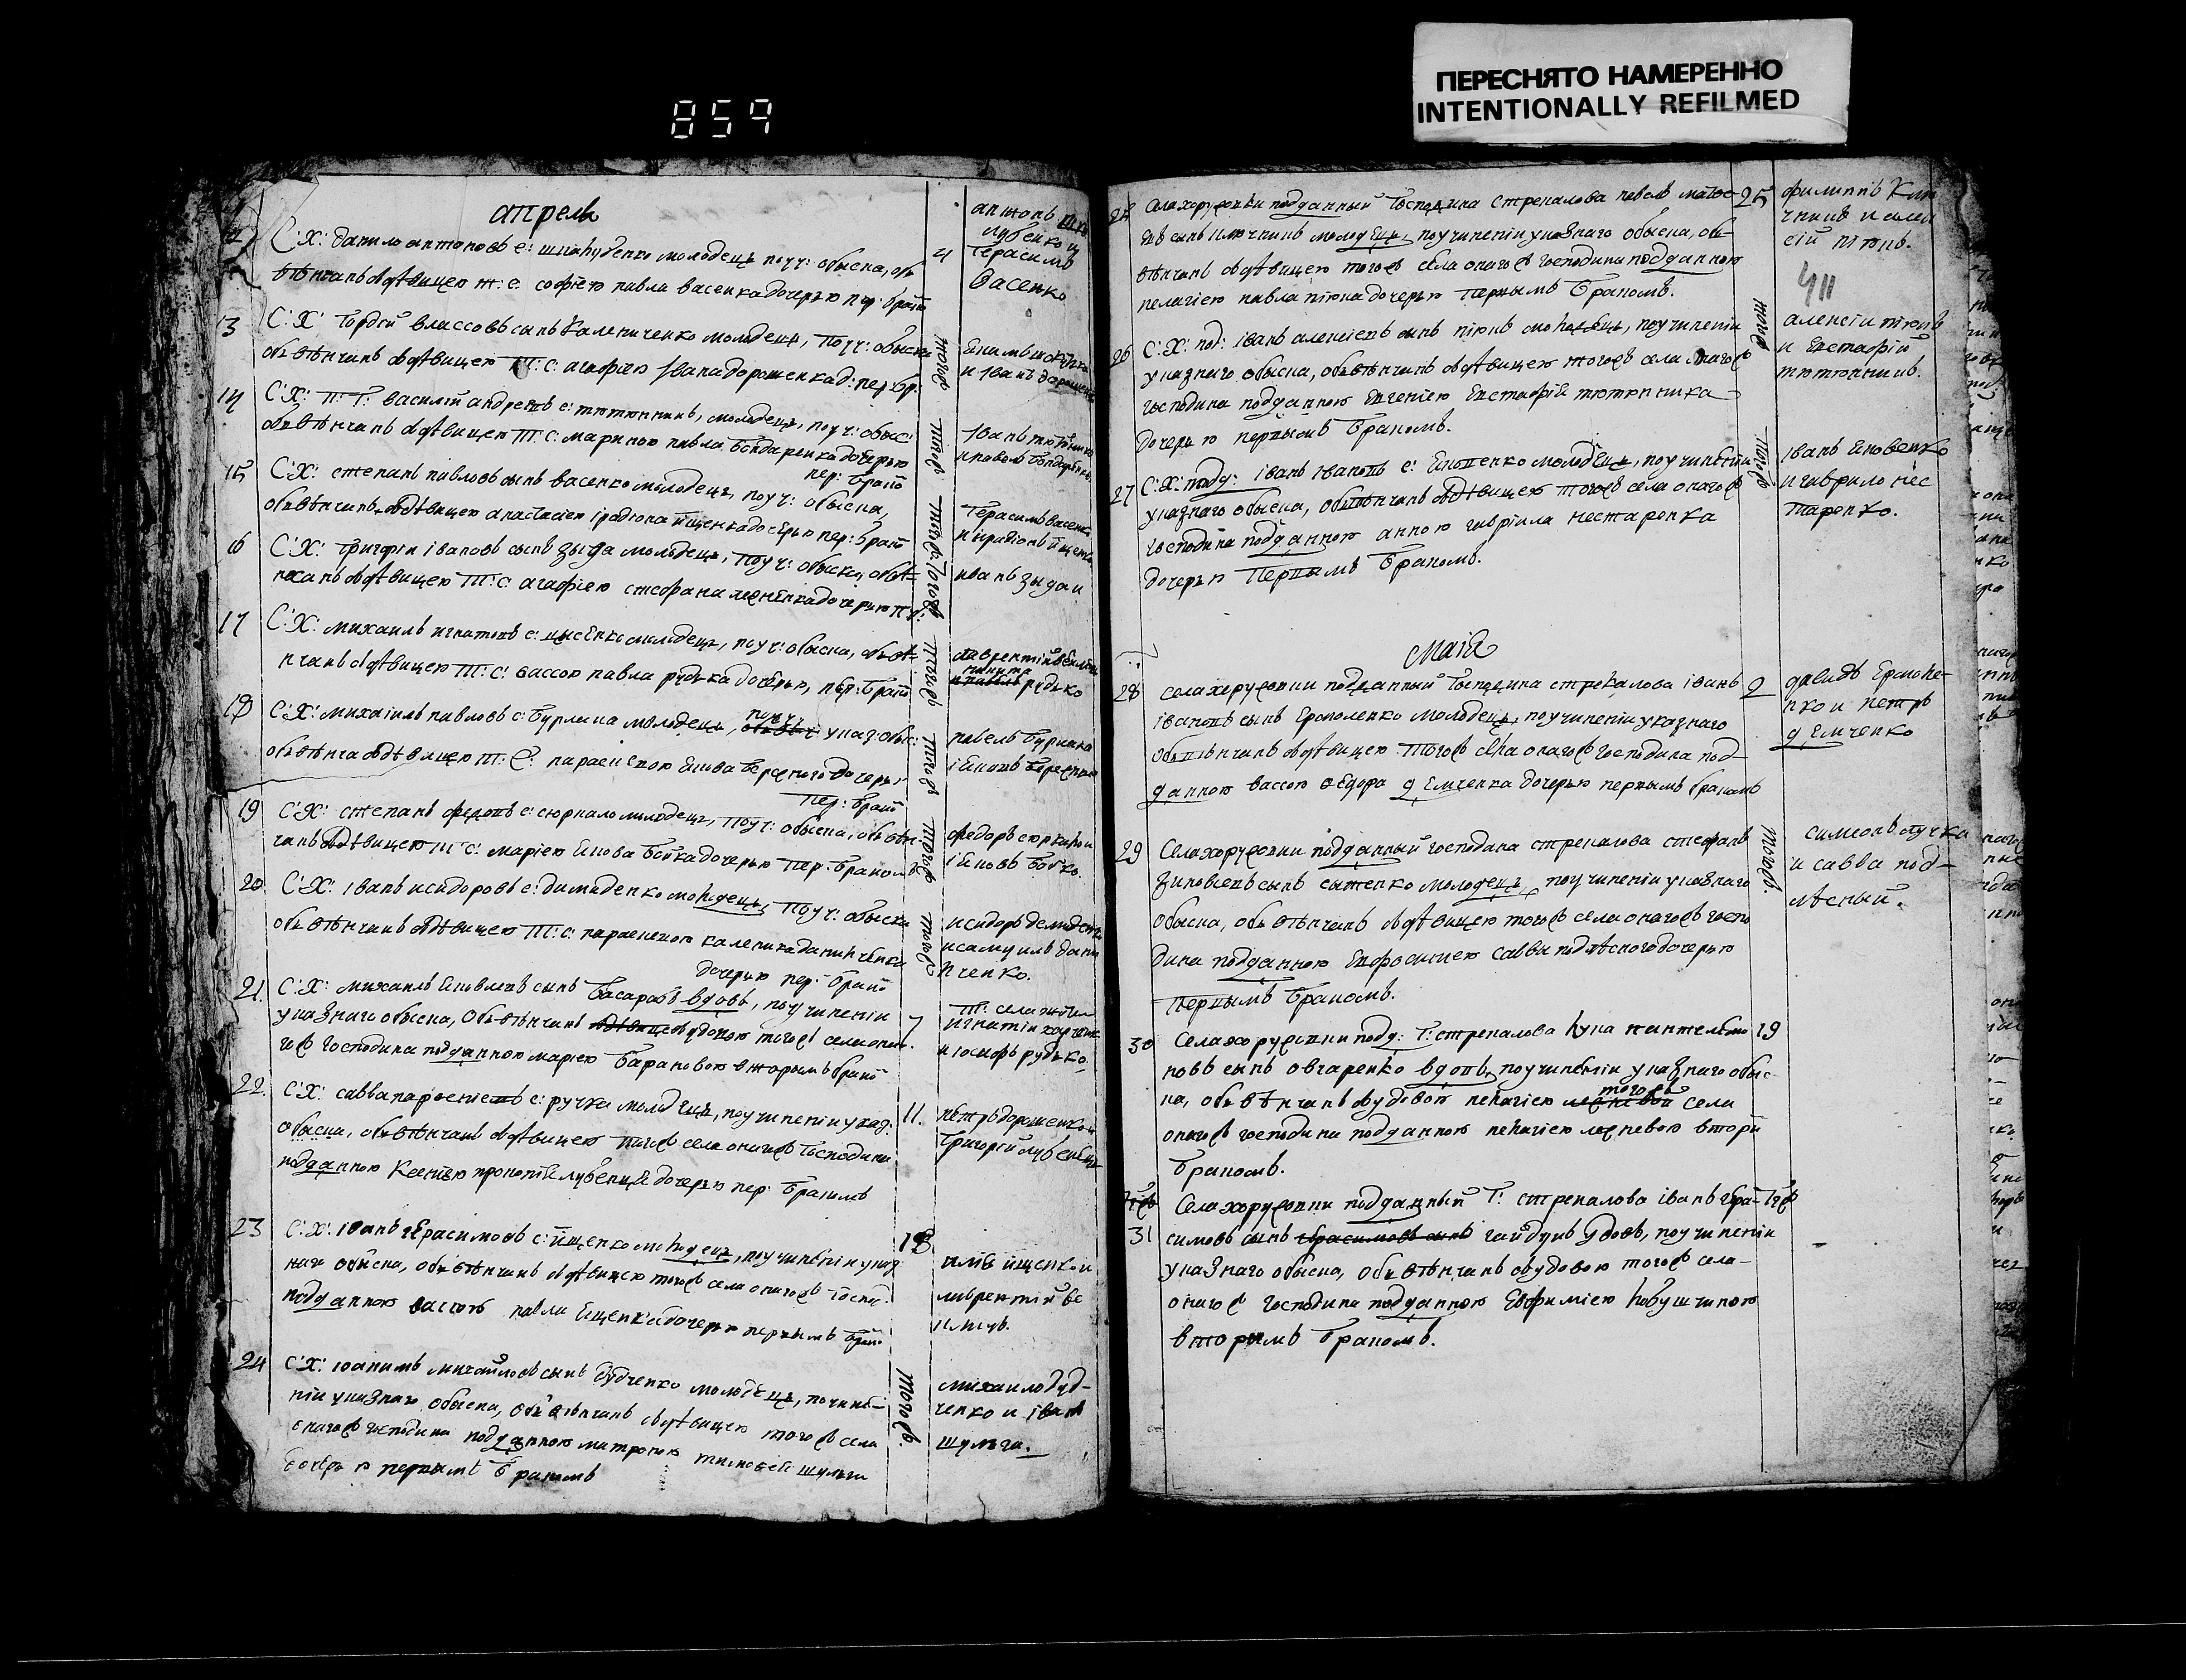 859
ПЕРЕСНЯТО НАМЕРЕННО
INTENTIONALLY REFILMED
апрель
С: Х: данило антоновъ с: молодецъ по уч: обыска, об
вѣнчанъ з дѣвицею т: с: софіею павла васенка дочерью пер: брако
4
антонъ
и
герасимъ
васенко
13
С: Х: гордей власовъ сынъ калениченко молодецъ, по уч: обыска
обвѣнчанъ з дѣвицею т: с: агафіею івана дорошенка д: пер: бр:
тогожъ
и іванъ дорошенко
14
С: Х: п: г: василій андреевъ с: тютюнникъ, молодецъ, по уч: обыс:
обвѣнчанъ з дѣвицею т: с: мариною павла бондаренка дочерью
пер: брако
тогожъ
іванъ тютюнникъ
и павелъ бондаренко
15
С: Х: степанъ павловъ сынъ васенко молодецъ, по уч: обыска,
обвѣнчанъ з дѣвицею анастасіею іродіона йщенка дочерью пер: брако
тогожъ
герасимъ васенко
и иродіонъ йщенко
16
С: Х: григорій івановъ сынъ зыґа молодецъ, по уч: обыска, обвѣ-
нчанъ з дѣвицею т: с: агафіею стефана дочерью п: б:
тогожъ
иванъ зыґа и
17
С: Х: михаилъ игнатовъ с: молодецъ, по уч: обыска, обвѣ-
нчанъ з дѣвицею т: с: вассою павла рудька дочерью, пер: брако
тогожъ
лаврентій
никита
рудько
18
С: Х: михаилъ павловъ с: бурлака молодецъ, по уч: указ: обыс:
обвѣнча з дѣвицею т: с: параскевою якова бережного дочерью
пер: брако
тогожъ
павелъ бурлака
і яковъ бережный
19
С: Х: степанъ федоровъ с: сюркало молодецъ, по уч: обыска, обвѣн-
чанъ з дѣвицею т: с: маріею якова бойка дочерью пер: бракомъ
тогожъ
федоръ сюркало и
і яковъ бойко.
20
С: Х: іванъ исидоровъ с: димиденко молодецъ, по уч: обыска
обвѣнчанъ з дѣвицею т: с: параскевою каленика данилченка
дочерью пер: брако
тогожъ
исидоръ демиденко
и самуилъ дани
лченко.
21.
С: Х: михаилъ яковлевъ сынъ басарабъ вдовъ, по учиненіи
указнаго обыска, обвѣнчанъ з вдовою тогожъ села онаг.
гожъ господина подданною маріею барановою вторымъ брако
7
т: села жители
игнатій
и іосифъ рудько.
22.
С: Х: савва с: ручка молодецъ, по учиненіи указ:
обыска, обвѣнчанъ з дѣвицею тогожъ села онагожъ господина
подданною ксеніею прокопія дочерью пер: бракомъ
11.
петръ дорошенко и
григорій
23
С: Х: іванъ герасимовъ с: йщенко молодецъ, по учиненіи указ
наго обыска, обвѣнчанъ з дѣвицею тогожъ села онагожъ госпо:
подданною вассою павла дочерью первымъ брако
18
йщенко и
лаврентій
24
С: Х: іоакимъ михайловъ сынъ дудченко молодецъ, по учине-
ніи указнаго обыска, обвѣнчанъ з дѣвицею тогожъ села
онагожъ господина подданною матроною тимофея шульги
дочерью первымъ бракомъ
тогожъ.
михаило дуд-
ченко и іванъ
шульга.
Села хоружовки подданный господина стрекалова павелъ
сынъ ключникъ молодецъ, по учиненіи указнаго обыска, об-
вѣнчанъ з дѣвицею тогожъ села онагожъ господина подданною
пелагіею павла пѣюна дочерью первымъ бракомъ.
25
филиппъ клю
чникъ и алек
сій
411
26
С: Х: под: іванъ алексіевъ сынъ молодецъ, по учиненіи
указнаго обыска, обвѣнчанъ з дѣвицею тогожъ села онагожъ
господина подданною евгеніею евстафія тютюнника
дочерью первымъ бракомъ.
тогожъ
алексій
и евстафій
тютюнникъ.
27
С: Х: подд: іванъ івановъ с: яковенко молодецъ, по учиненіи
указнаго обыска, обвѣнчанъ з дѣвицею тогожъ села онагожъ
господина подданною анною гавріила нестаренка
дочерью первымъ бракомъ.
тогожъ
іванъ яковенко
и гаврило нес
таренко.
маія
28
села хоружовки подданный господина стрекалова іванъ
івановъ сынъ ермоленко молодецъ, по учиненіи указнаго
обвѣнчанъ з дѣвицею тогожъ села онагожъ господина под-
данною вассою ѳедора демченка дочерью первымъ бракомъ
9
давидъ ермоле-
нко и петръ
демченко
29
Села хоружовки подданный господина стрекалова стефанъ
зиновіевъ сынъ сытенко молодецъ, по учиненіи указнаго
обыска, обвѣнчанъ з дѣвицею тогожъ села онагожъ госпо
дина подданною евфросиніею саввы подлѣсного дочерью
первымъ бракомъ.
тогожъ.
симеонъ лучка
и савва под-
лѣсный.
30
Села хоружовки подд: г: стрекалова лука
новъ сынъ овчаренко вдовъ, по учиненіи указнаго обыс-
ка, обвѣнчанъ з вдовою пелагіею тогожъ села
онагожъ господина подданною пелагіею второй
бракомъ.
19
31
Села хоружовки подданный г: стрекалова іванъ гера-
симовъ сынъ гайдукъ вдовъ, по учиненіи
указнаго обыска, обвѣнчанъ з вдовою тогожъ села-
онагожъ господина подданною евфиміею
вторымъ бракомъ.